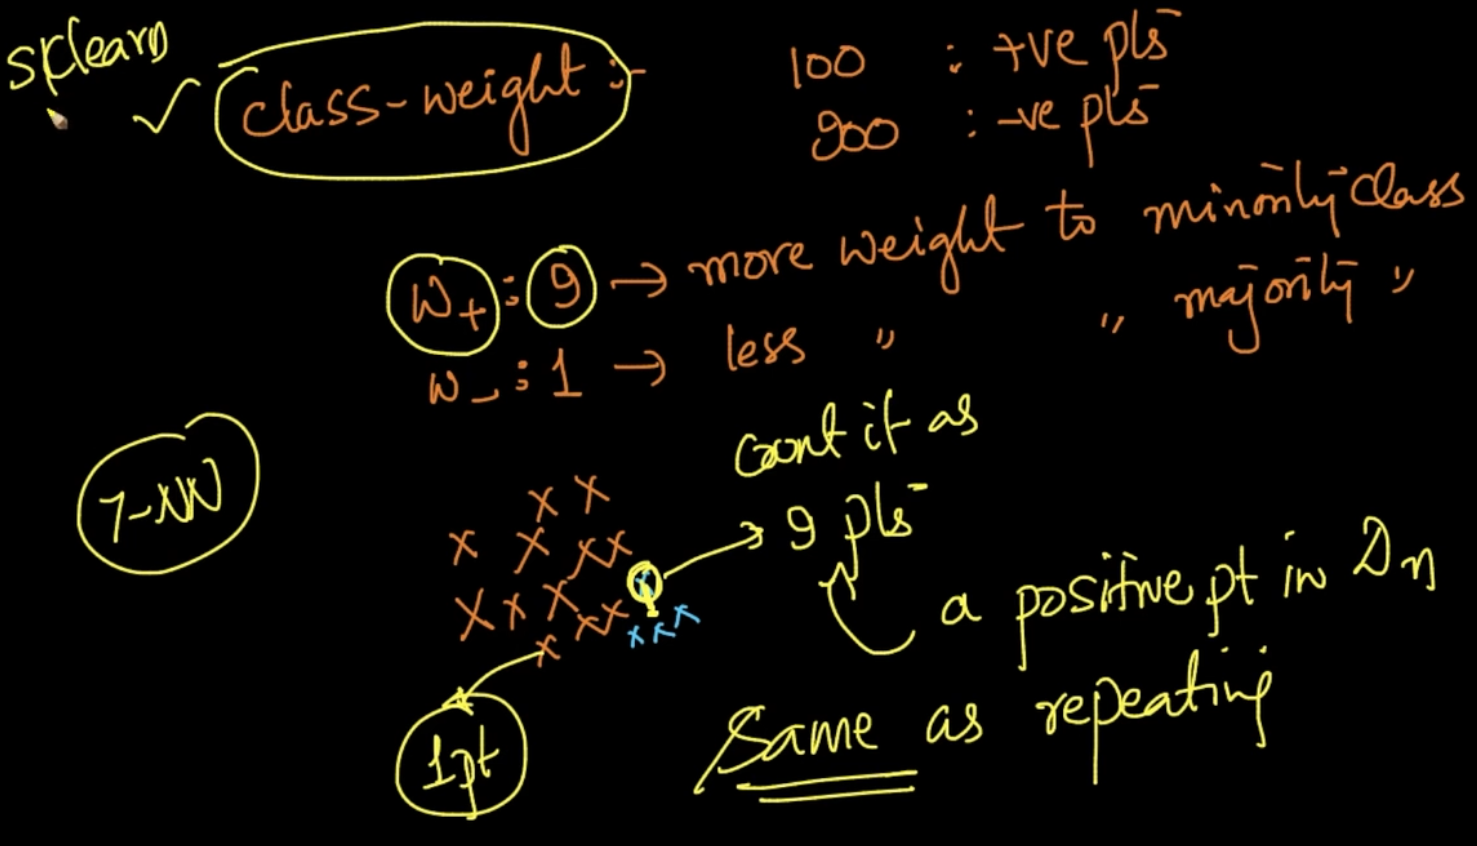 sklearn
✓ class-weight :-
100 : +ve pts
900 : -ve pts
W+ : 9 → more weight to minority class
W- : 1 → less " " majority "
7-NN
Count it as
→ 9 pts
a positive pt in Dn
1pt
Same as repeating